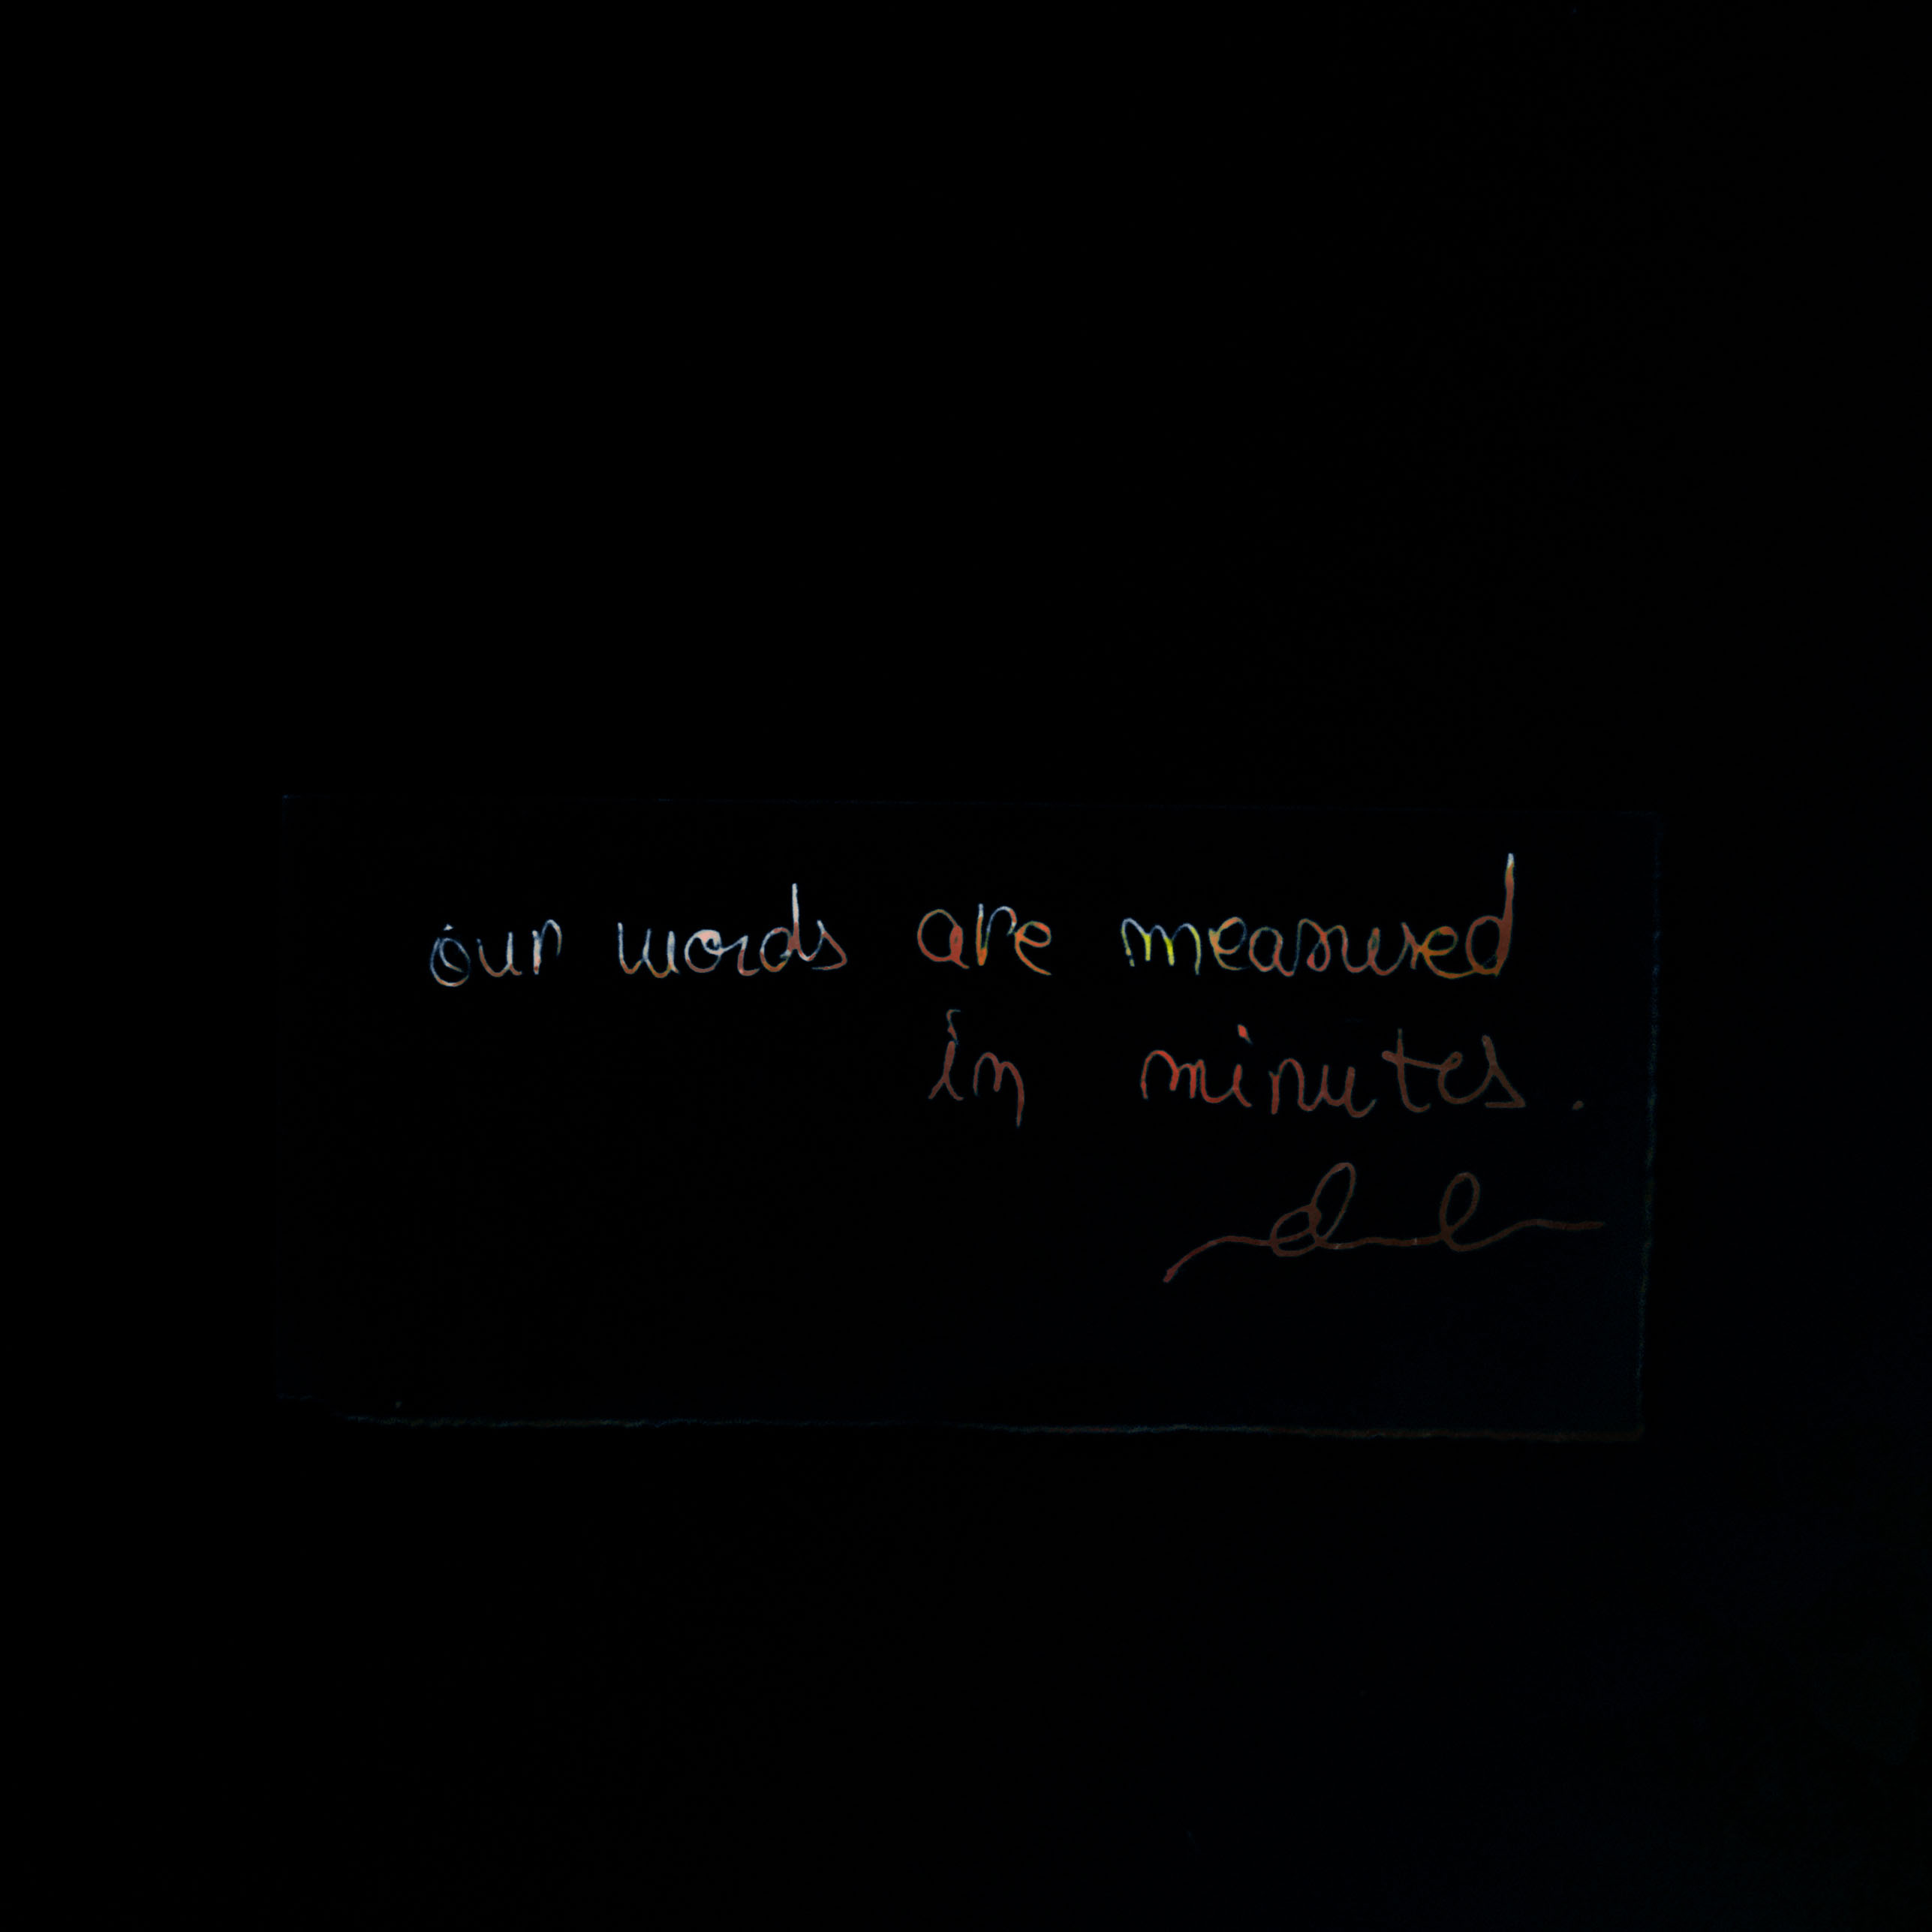 our words are measured
in minutes.